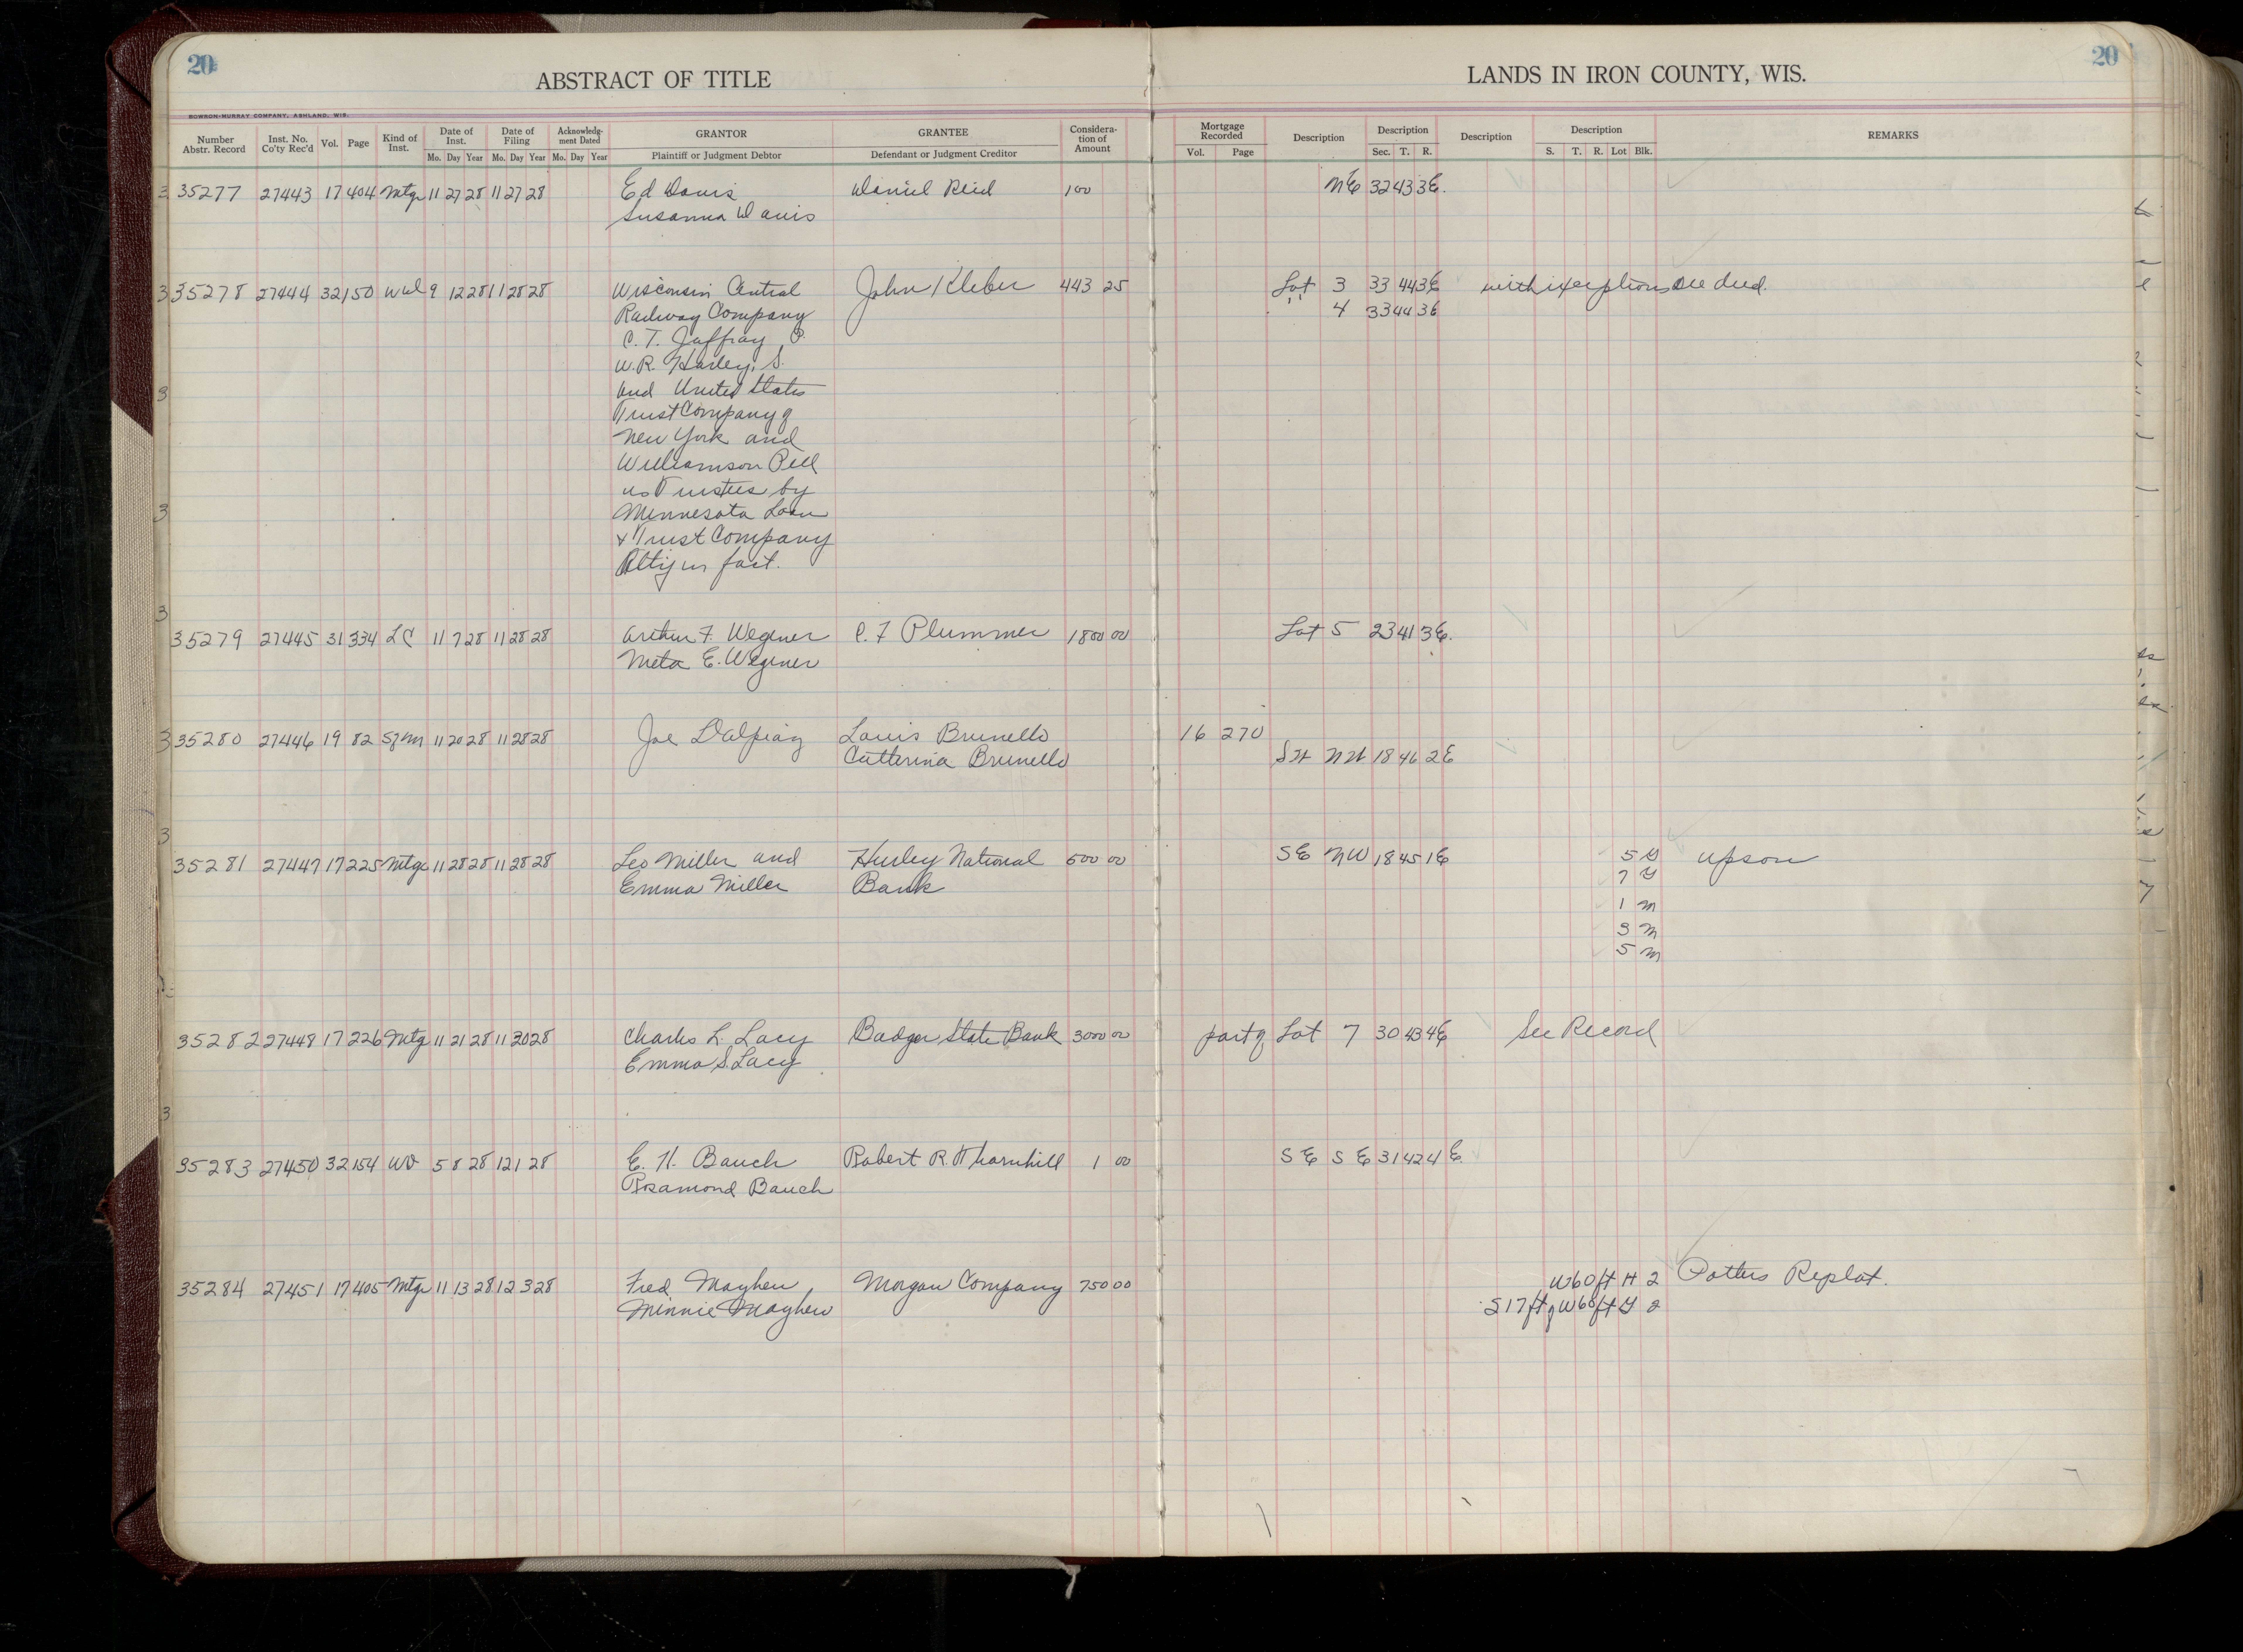 20
ABSTRACT OF TITLE
LANDS IN IRON COUNTY, WIS.
20
BOWRON-MURRAY COMPANY, ASHLAND, WIS.
Number Abstr. Record | Inst. No. Co'ty Rec'd | Vol. | Page | Kind of Inst. | Date of Inst. Mo. Day Year | Date of Filing Mo. Day Year | Acknowledg-ment Dated Mo. Day Year | GRANTOR Plaintiff or Judgment Debtor | GRANTEE Defendant or Judgment Creditor | Considera-tion of Amount | Mortgage Recorded Vol. Page | Description | Description Sec. T. R. | Description | Description S. T. R. Lot Blk. | REMARKS
35277 27443 17 404 Mtge 11 27 28 11 27 28 Ed Davis Daniel Reid 100 NE 32 43 3E.
Susanna Davis
35278 27444 32 150 9 12 28 11 28 28 Wisconsin Central John Kleber 443 25 Lot 3 33 44 3E with exceptions see deed.
Railway Company " 4 33 44 3E
C. T. Jaffray P.
W. R. Harley, S.
and United States
Trust Company of
New York and
Williamson Pell
as Trustees by
Minnesota Loan
& Trust Company
Atty in fact.
35279 27445 31 334 LC 11 7 28 11 28 28 Arthur F. Wegener C. F Plummer 1800 00 Lot 5 23 41 3E.
Meta E. Wegener
35280 27446 19 82 11 20 28 11 28 28 Joe Dalpiaz Louis Brunello 16 270
Catterina Brunello 18 46 2E
35281 27447 17 225 Mtge 11 28 28 11 28 28 Leo Miller and Hurley National 500 00 SE NW 18 45 1E 5 G Upson
Emma Miller Bank 7 G
1 M
3 M
5 M
35282 27448 17 226 Mtg 11 21 28 11 30 28 Charles L. Lacy Badger State Bank 3000 00 part of Lot 7 30 43 4E See Record
Emma S. Lacy
35283 27450 32 154 WD 5 8 28 12 1 28 E. H. Bauch Robert R. Thornhill 1 00 S E S E 31 42 4 E.
Rosamond Bauch
35284 27451 17 405 Mtge 11 13 28 12 3 28 Fred Mayhew Morgan Company 750 00 W60ft H 2 Potters Replat.
Minnie Mayhew S17ft of W60ft G 2